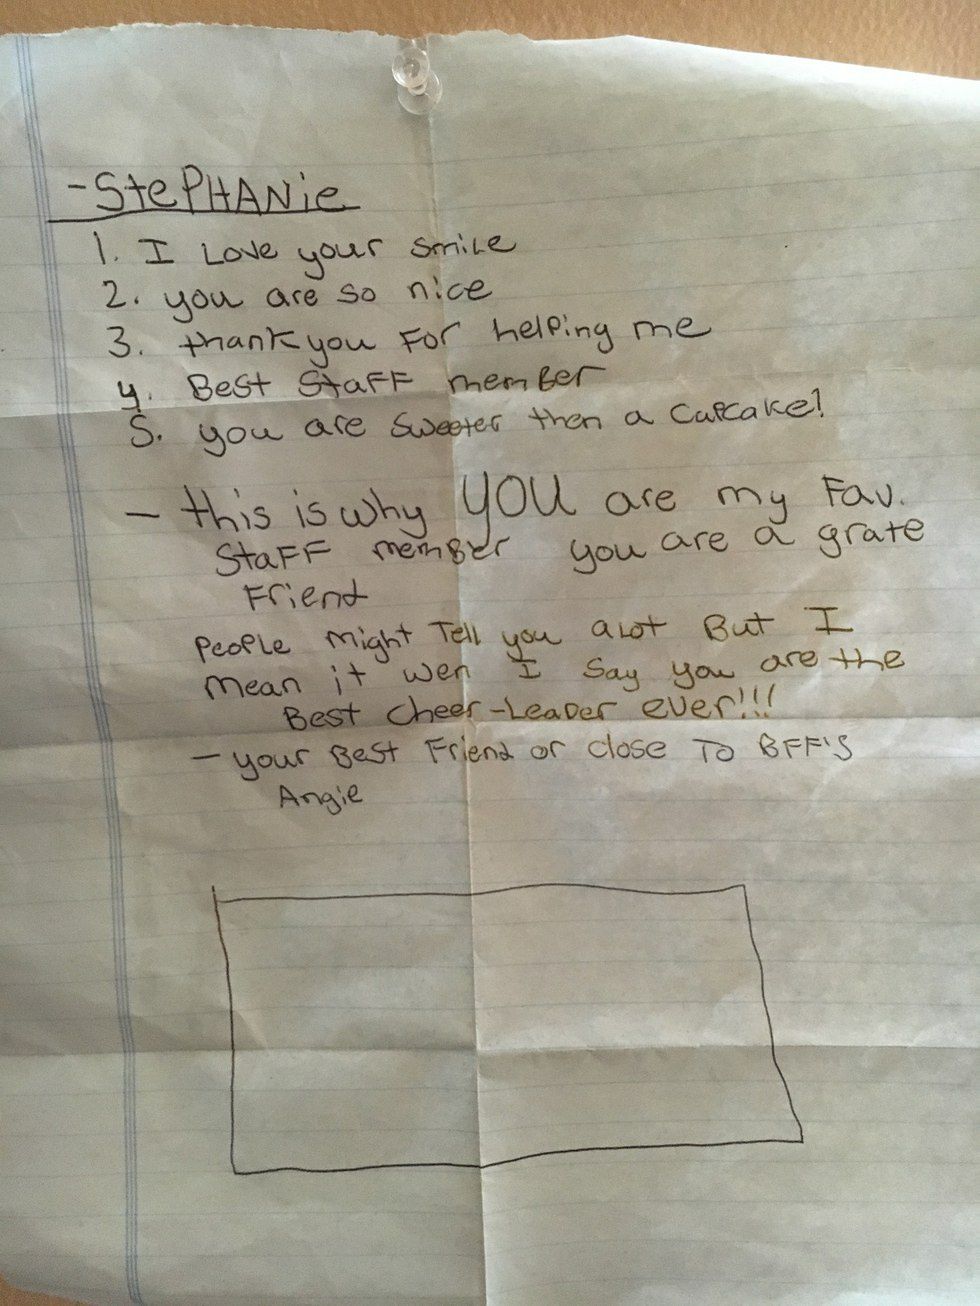 - StePHANie
1. I Love your smile
2. you are so nice
3. thank you For helping me
4. Best StaFF member
5. you are sweeter then a cupcake!
- this is why YOU are my Fav.
StaFF member you are a grate
Friend
People might Tell you alot But I
mean it wen I say you are the
Best cheer-Leader ever!!!
- your Best Friend or close To BFF'S
Angie